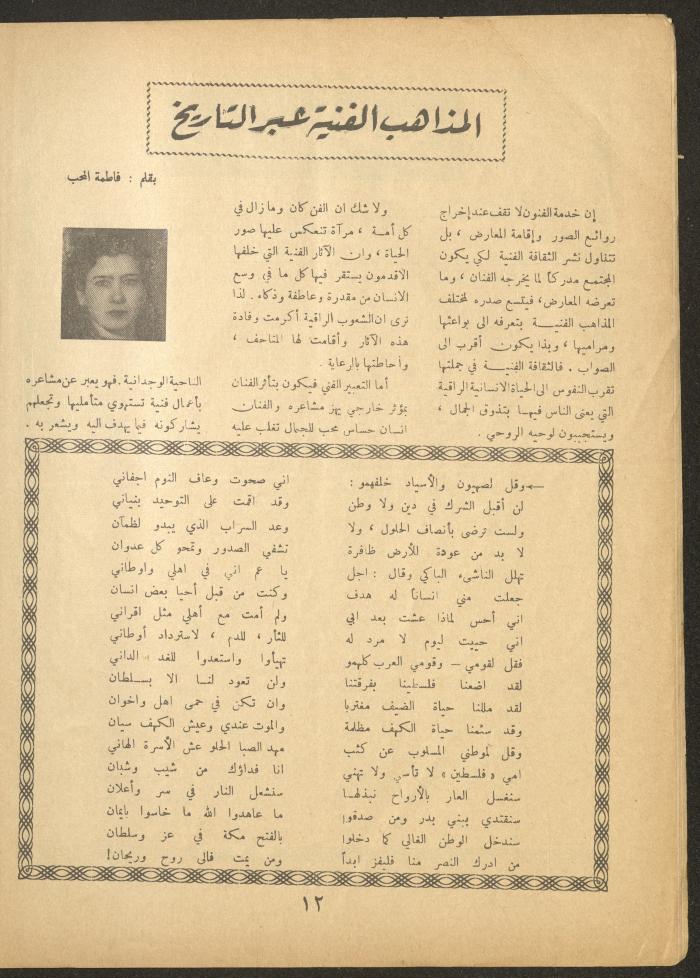 المذاهب الفنية عبر التاريخ
بقلم : فاطمة المحب
إن خدمة الفنون لا تقف عند إخراج
روائع الصور وإقامة المعارض ، بل
تتناول نشر الثقافة الفنية لكي يكون
المجتمع مدركاً لما يخرجه الفنان ، وما
تعرضه المعارض، فيتسع صدره لمختلف
المذاهب الفنيـــة بتعرفه الى بواعثها
ومراميها ، وبذا يكون أقرب الى
الصواب . فالثقافة الفنيـــة في جملتها
تقرب النفوس الى الحياة الانسانية الراقية
التي يعنى الناس فيهــا بتذوق الجمال ،
ويستجيبون لوحيه الروحي .
ولا شك ان الفن كان وما زال في
كل أمــة ، مرآة تنعكس عليها صور
الحياة ، وان الآثار الفنية التي خلفها
الاقدمون يستقر فيها كل ما في وسع
الانسان من مقدرة وعاطفة وذكاء . لذا
نرى ان الشعوب الراقية أكرمت وفادة
هذه الآثار وأقامت لها المتاحف ،
وأحاطتها بالرعاية .
أما التعبير الفني فيكون بتأثر الفنان
بمؤثر خارجي يهز مشاعره والفنان
انسان حساس محب للجمال تغلب عليه
الناحية الوجدانية . فهو يعبر عن مشاعره
بأعمال فنية تستهوي متأمليها وتجعلهم
يشاركونه فيما يهدف اليه ويشعر به .
وقل لصهيون والأسياد خلفهمو : اني صحوت وعاف النوم اجفاني
لن أقبل الشرك في دين ولا وطن وقد اقمت على التوحيد بنياني
ولست ترضى بأنصاف الحلول ، ولا وعد السراب الذي يبدو لظمآن
لا بد من عودة للأرض ظافرة تشفي الصدور وتمحو كل عدوان
تهلل الناشىء الباكي وقال : اجل يا عم اني في اهلي واوطاني
جعلت مني انساناً له هدف وكنت من قبل أحيا بعض انسان
اني أحس لماذا عشت بعد ابي ولم أمت مع أهلي مثل اقراني
اني حييت ليوم لا مرد له للثأر ، للدم ، لاسترداد أوطاني
فقل لقومي – وقومي العرب كلهمو تهيأوا واستعدوا للغد الداني
لقد اضعنا فلسطيننا بفرقتنا ولن تعود لنــا الا بســلطان
لقد مللنا حياة الضيف مغتربا وان تكن في حمى اهل واخوان
وقد سئمنا حياة الكهف مظلمة والموت عندي وعيش الكهف سيان
وقل لموطني المسلوب عن كثب مهد الصبا الحلو عش الأسرة الهاني
امي « فلسطين » لا تأسي ولا تهني انا فداؤك من شيب وشبان
سنغسل العار بالأرواح نبذلهــا سنشعل النار في سر وأعلان
سنقتدي ببني بدر ومن صدقوا ما عاهدوا الله ما خاسوا بايمان
سندخل الوطن الغالي كما دخلوا بالفتح مكة في عز وسلطان
من ادرك النصر منا فليفز ابداً ومن يمت فالى روح وريحان!
١٢